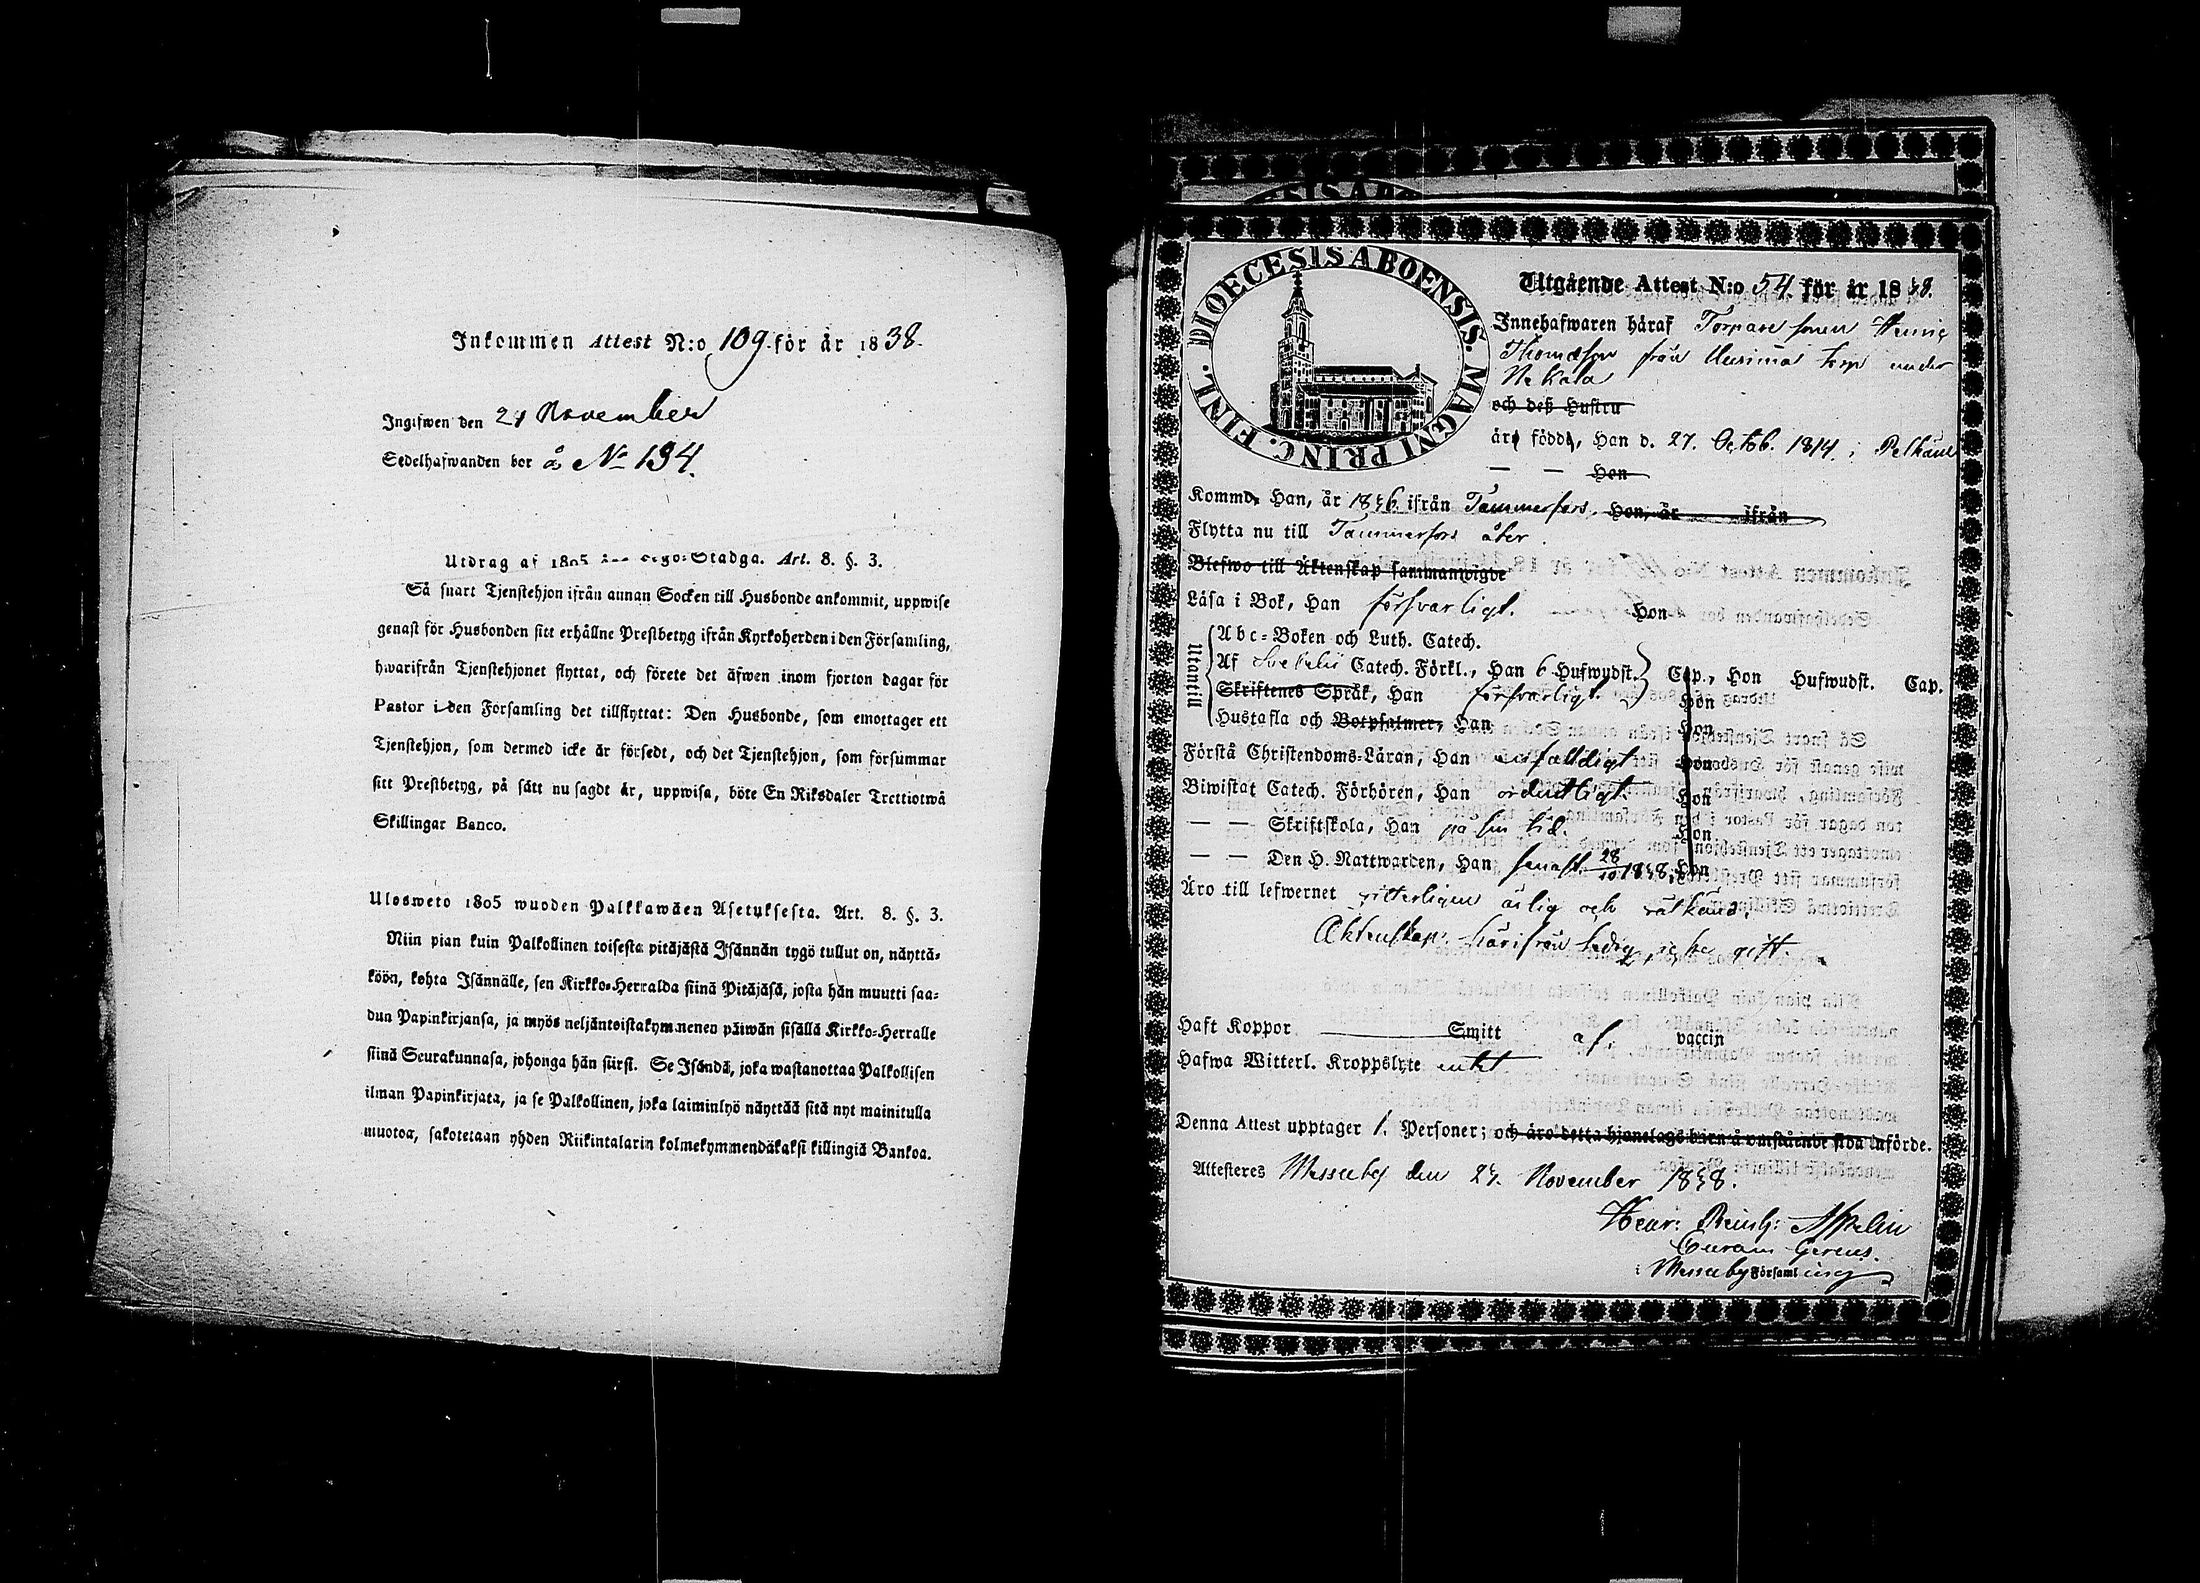 Inkommen Attest N:o 109 för år 1838.
Ingifwen den 21 November
Sedelhafwanden bor å No 134.
Utdrag af 1805 Lego-Stadga. Art. 8. §. 3.
Så snart Tjenstehjon ifrån annan Socken till Husbonde ankommit, uppwise
genast för Husbonden sitt erhållne Prestbetyg ifrån Kyrkoherden i den Församling,
hwarifrån Tjenstehjonet flyttat, och förete det äfwen inom fjorton dagar för
Pastor i den Församling det tillflyttat: Den Husbonde, som emottager ett
Tjenstehjon, som dermed icke är försedt, och det Tjenstehjon, som försummar
sitt Prestbetyg, på sätt nu sagdt är, uppwisa, böte En Riksdaler Trettiotwå
Skillingar Banco.
Ulosweto 1805 wuoden Palkkawäen Asetuksesta. Art. 8. §. 3.
Niin pian kuin Palkollinen toisesta pitäjästä Isännän tygö tullut on, näyttä-
köön, kohta Isännälle, sen Kirkko-Herralda siinä Pitäjäsä, josta hän muutti saa-
dun Papinkirjansa, ja myös neljäntoistakymmenen päiwän sisällä Kirkko-Herralle
siinä Seurakunnasa, johonga hän siirsi. Se Isändä, joka wastanottaa Palkollisen
ilman Papinkirjata, ja se Palkollinen, joka laiminlyö näyttää sitä nyt mainitulla
muotoa, sakotetaan yhden Riikintalarin kolmekymmendäkaksi killingiä Bankoa.
DIOECESIS ABOENSIS. MAGNI PRINC. FINL.
Utgående Attest N:o 54 för år 1838.
Innehafwaren häraf Torpare sonen
Thomasson från torp under
och deß Hustru
äro födde, Han d. 27. Octob. 1814. i Pelkäne
— — Hon
Kommo, Han, år 1836. ifrån Tammerfors, Hon, år ifrån
Flytta nu till Tammerfors åter.
Blefwo till Äktenskap sammanwigde
Läsa i Bok, Han försvarligt. Hon
Utantill
Abc-Boken och Luth. Catech.
Af Svebelii Catech. Förkl., Han 6 Hufwudst. Cap., Hon Hufwudst. Cap.
Skriftenes Språk, Han försvarligt. Hon
Hustafla och Botpsalmer, Han Hon
Förstå Christendoms-Läran, Han enfaldigt Hon
Biwistat Catech. Förhören, Han ordentligt. Hon
— — Skriftskola, Han på sin tid. Hon
— — Den H. Nattwarden, Han senast 28/10 1838, Hon
Äro till lefwernet witterligen ärlig och
Äktenskap härifrån ledig
Haft Koppor Smitt af vaccin
Hafwa Witterl. Kroppslyte intet
Denna Attest upptager 1. Personer; och äro detta hjonelags barn å omstående sida införde.
Attesteres Messuby den 21. November 1838.
Henr: Reinh: Appelin
Curam Gerens.
i Messuby Församling